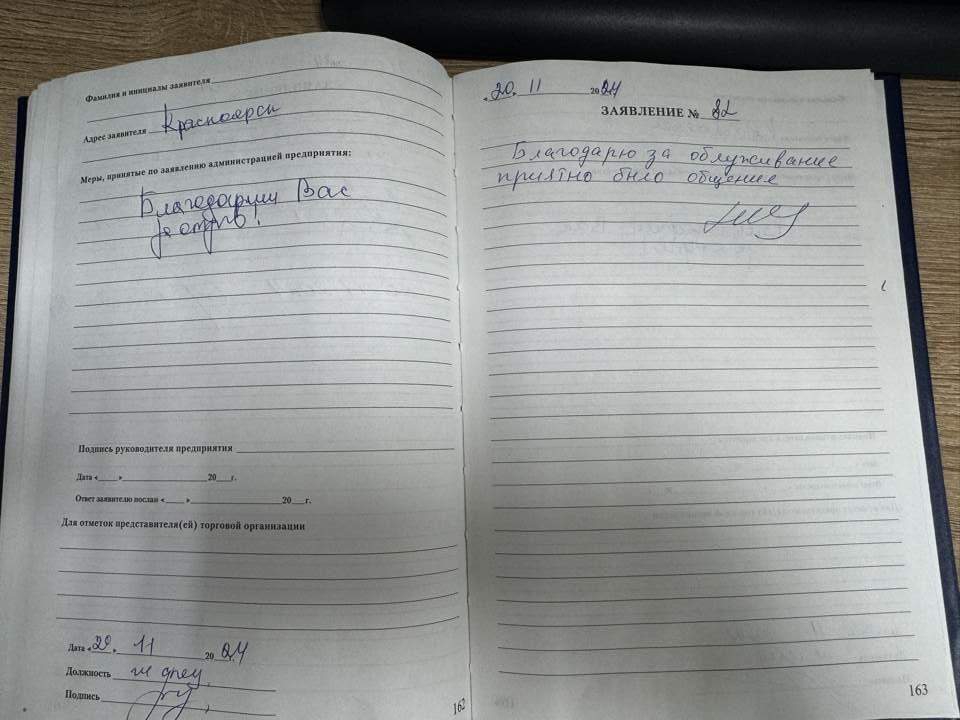 Фамилия и инициалы заявителя
Адрес заявителя Красноярск
Меры, принятые по заявлению администрацией предприятия:
Благодарим Вас
за отзыв!
Подпись руководителя предприятия
Дата « » 20 г.
Ответ заявителю послан « » 20 г.
Для отметок представителя(ей) торговой организации
Дата «29. » 11 2024
Должность
Подпись
162
«20. 11 2024
ЗАЯВЛЕНИЕ № 82
Благодарю за облуживание
приятно было общение
163